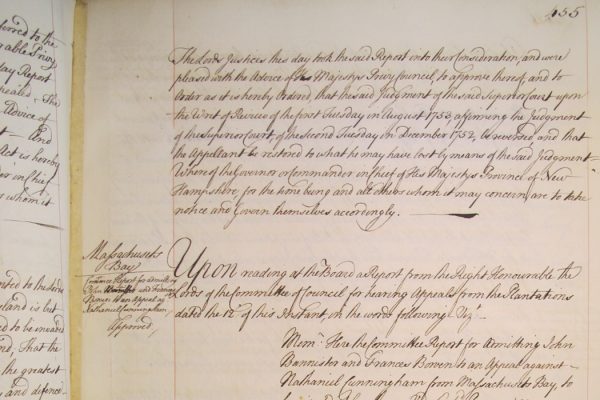 455
ferred to the
rable Privy
day Report
epealed. The
Advice of
And
Act is hereby
der in Chief
y whom it
nted to Inderie
eland is but
d to be invaded
nd, That the
the greatest
and defence
The Lords Justices this day took the said Report into their Consideration, and were
pleased with the Advice of His Majestys Privy Council, to approve thereof, and to
Order as it is hereby Ordered, that the said Judgment of the said Superior Court upon
the Writ of Review of the first Tuesday in August 1753 affirming the Judgment
of the Superior Court, of the Second Tuesday in December 1752, be reversed and that
the Appellant be restored to what he may have lost by means of the said Judgment
Whereof the Governor or Commander in Chief of His Majestys Province of New
Hampshire for the time being and all others whom it may concern, are to take
notice and Govern themselves accordingly.
Massachusets
Bay
Committee Report for admitting
John Bannister and Frances
Bowen to an Appeal ag.
Nathaniel Cunningham,
Approved,
Upon reading at the Board a Report from the Right Honourable the
Lords of the Committee of Council for hearing Appeals from the Plantations
dated the 12th of this Instant in the words following Viz.
Mem: Here the Committee Report for admitting John
Bannister and Frances Bowen to an Appeal against
Nathaniel Cunningham from Massachusets Bay, to